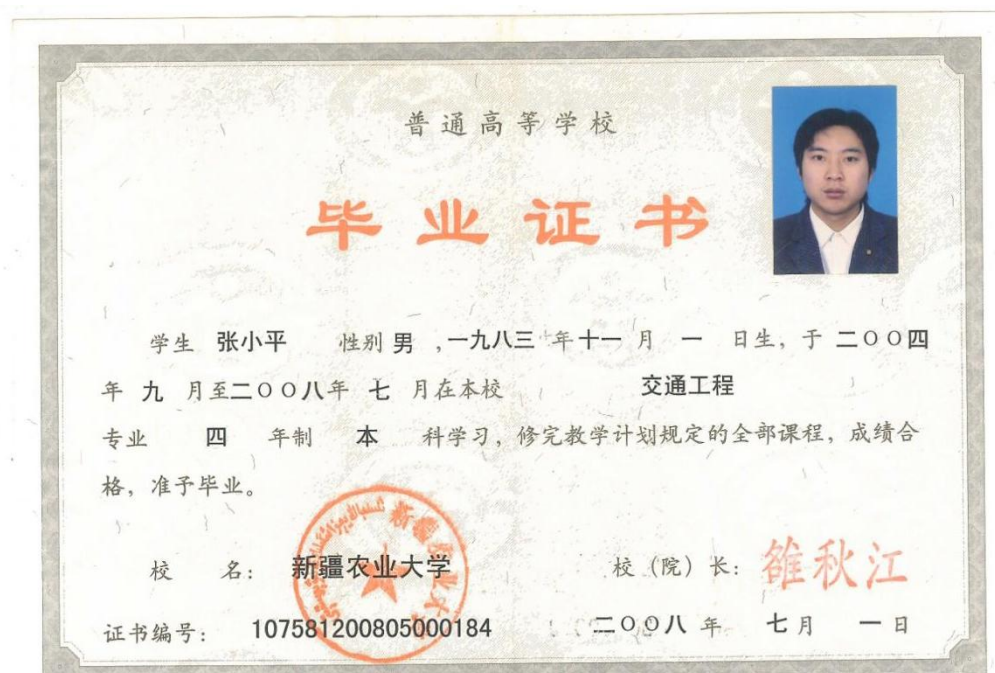 普通高等学校
毕业证书
学生 张小平 性别 男 ,一九八三 年 十一 月 一 日生, 于 二〇〇四
年 九 月至 二〇〇八 年 七 月在本校 交通工程
专业 四 年制 本 科学习, 修完教学计划规定的全部课程, 成绩合
格, 准予毕业。
校 名: 新疆农业大学 校(院)长: 雒秋江
新疆农业大学
证书编号: 107581200805000184 二〇〇八 年 七 月 一 日